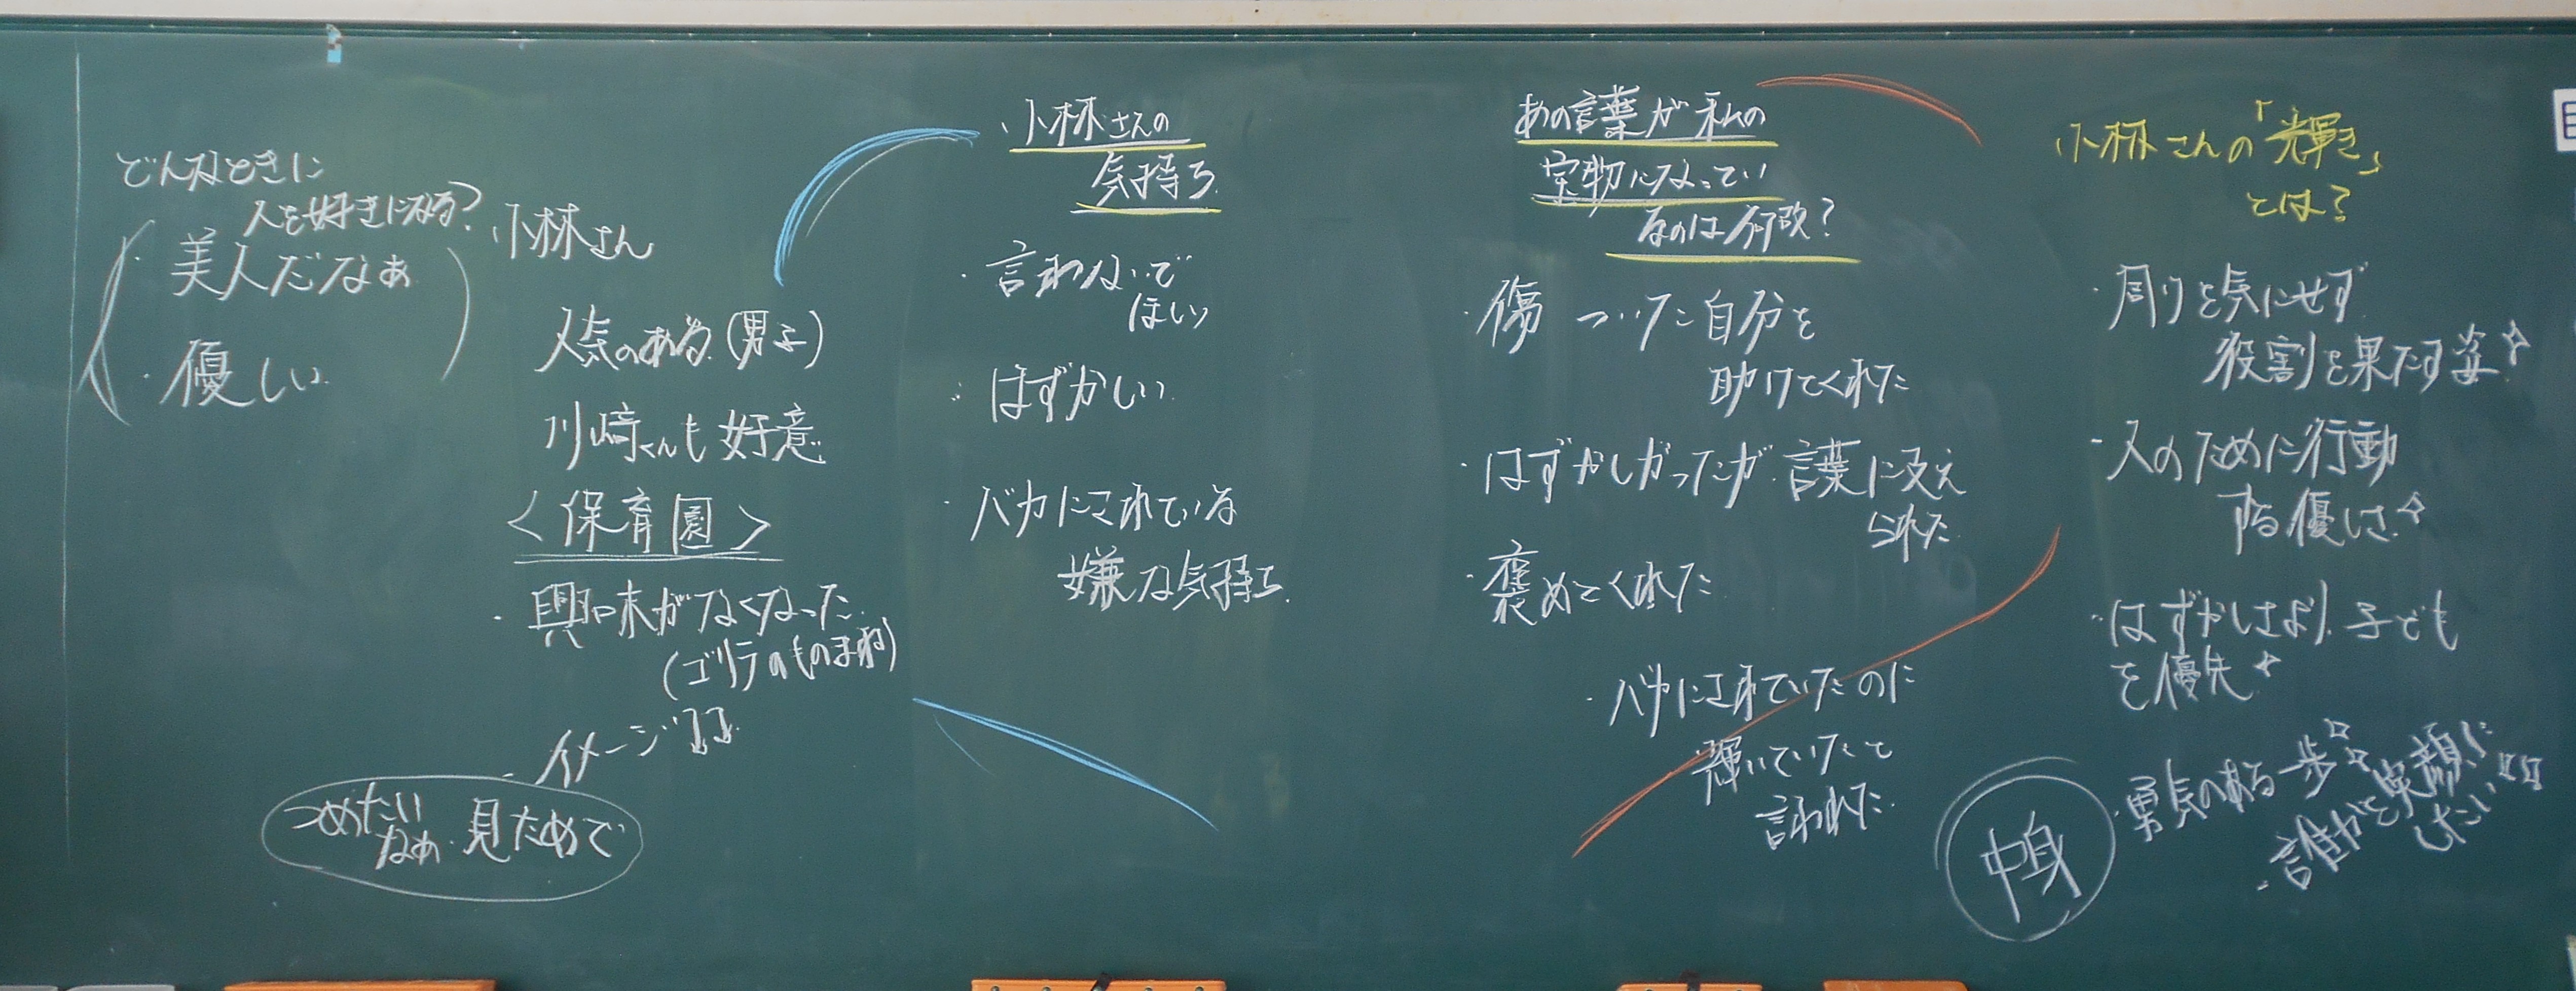 どんなときに
人を好きになる?
・美人だなぁ
・優しい
小林さん
人気のある(男子)
川崎くんも好意
<保育園>
・興味がなくなった
(ゴリラのものまね)
・イメージ⇩⇩
つめたい
なぁ・見ためで
小林さんの
気持ち
・言わないで
ほしい
・はずかしい
・バカにされている
嫌な気持ち
あの言葉が私の
宝物になってい
るのは何故?
・傷ついた自分を
助けてくれた
・はずかしかったが言葉に支え
られた
・褒めてくれた
・バカにされていたのに
輝いていたと
言われた
小林さんの「輝き」
とは?
・周りを気にせず
役割を果たす姿
・人のために行動
する優しさ
・はずかしさより子ども
を優先
・勇気のある一歩
・誰かを笑顔に
したい
中身